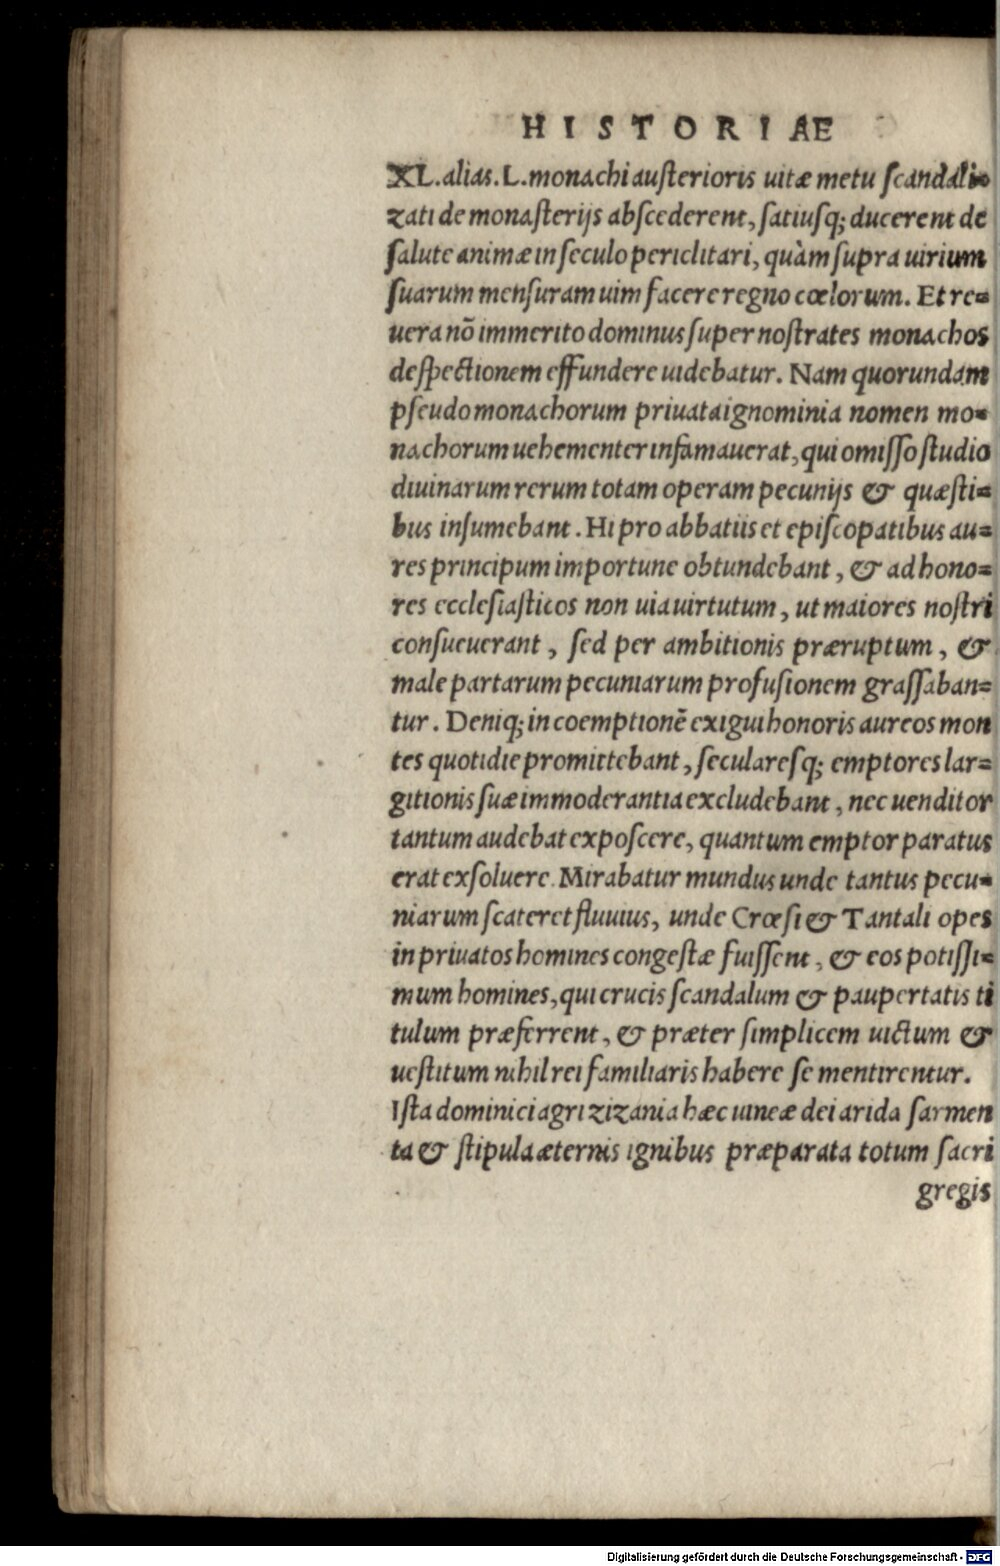 HISTORIAE
XL. alias. L. monachi austerioris uitæ metu scandali-
zati de monasterijs abscederent, satiusq; ducerent de
salute animæ in seculo periclitari, quàm supra uirium
suarum mensuram uim facere regno cœlorum. Et re=
uera nō immerito dominus super nostrates monachos
despectionem effundere uidebatur. Nam quorundam
pseudomonachorum priuata ignominia nomen mo=
nachorum uehementer infamauerat, qui omisso studio
diuinarum rerum totam operam pecunijs & quæsti=
bus insumebant. Hi pro abbatiis et episcopatibus au=
res principum importune obtundebant, & ad hono=
res ecclesiasticos non uia uirtutum, ut maiores nostri
consueuerant, sed per ambitionis præruptum, &
male partarum pecuniarum profusionem grassaban=
tur. Deniq; in coemptionē exigui honoris aureos mon
tes quotidie promittebant, secularesq; emptores lar=
gitionis suæ immoderantia excludebant, nec uenditor
tantum audebat exposcere, quantum emptor paratus
erat exsoluere. Mirabatur mundus unde tantus pecu=
niarum scateret fluuius, unde Crœsi & Tantali opes
in priuatos homines congestæ fuissent, & eos potissi=
mum homines, qui crucis scandalum & paupertatis ti
tulum præferrent, & præter simplicem uictum &
uestitum nihil rei familiaris habere se mentirentur.
Ista dominici agri zizania hæc uineæ dei arida sarmen
ta & stipula æternis ignibus præparata totum sacri
gregis
Digitalisierung gefördert durch die Deutsche Forschungsgemeinschaft - DFG